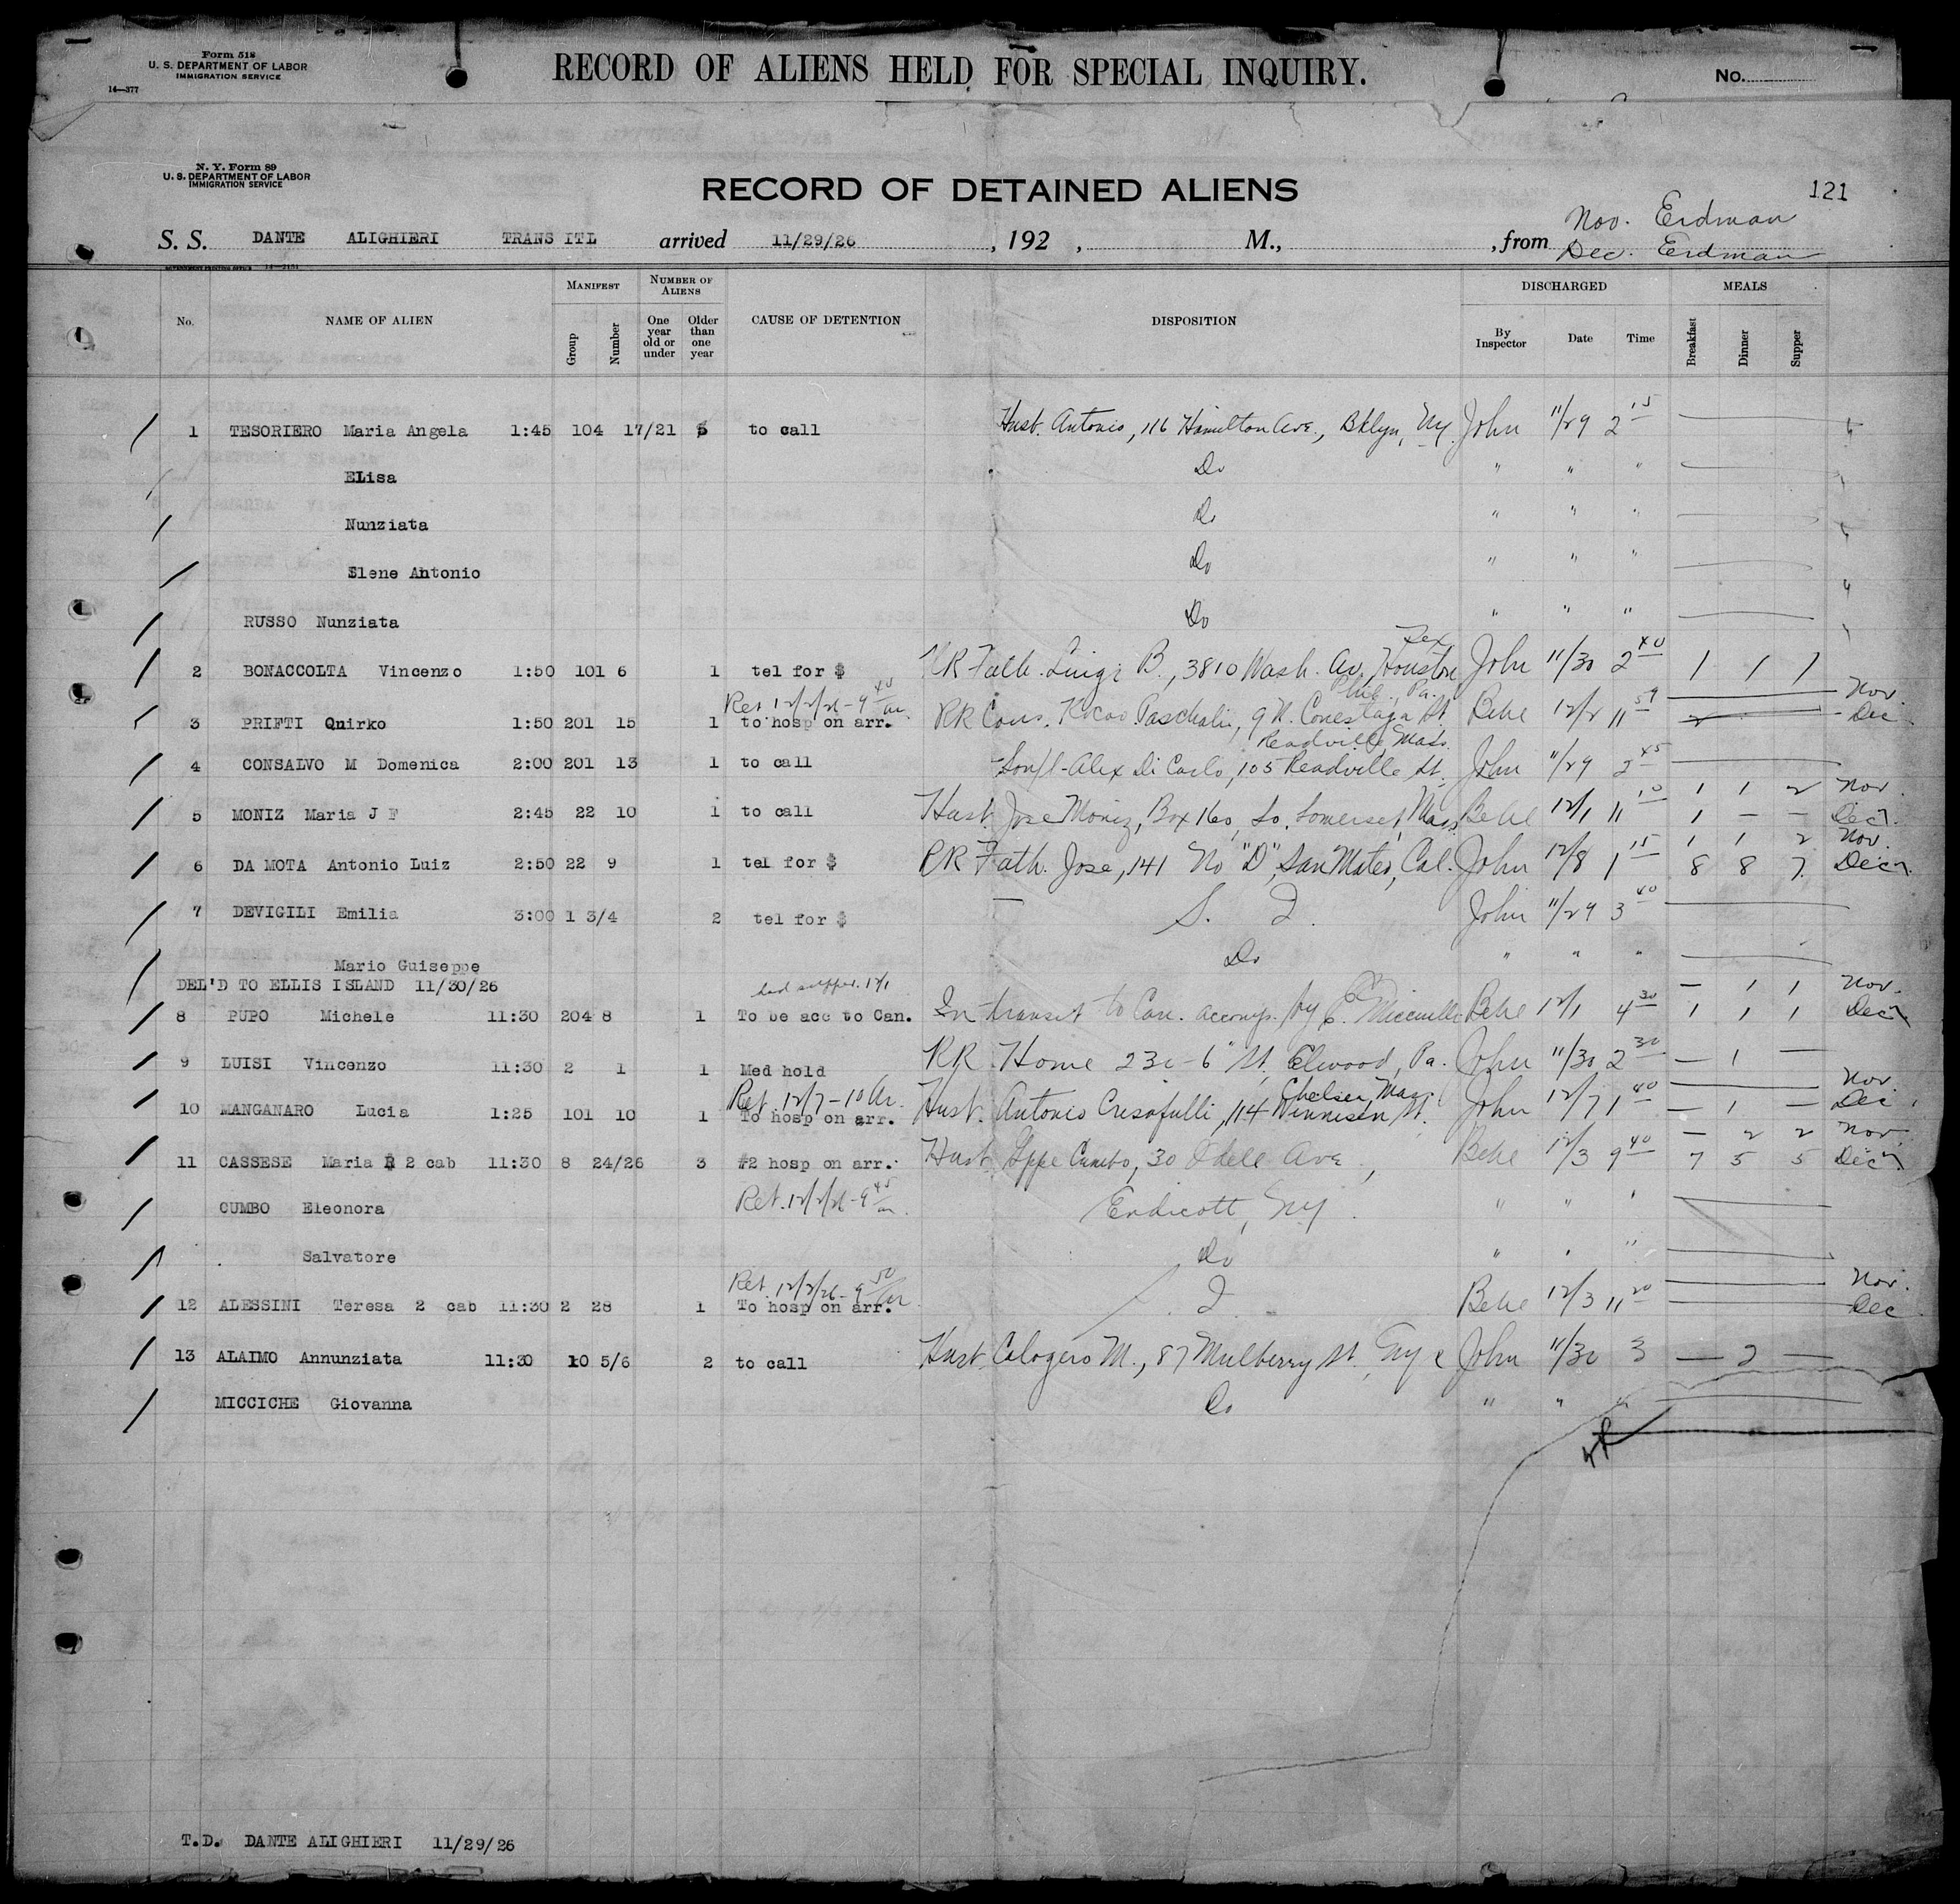 Form 518
U. S. DEPARTMENT OF LABOR
IMMIGRATION SERVICE
14—377
RECORD OF ALIENS HELD FOR SPECIAL INQUIRY.
No.
N. Y. Form 89
U. S. DEPARTMENT OF LABOR
IMMIGRATION SERVICE
RECORD OF DETAINED ALIENS
121
Nov. Erdman
S. S. DANTE ALIGHIERI TRANS ITL arrived 11/29/26, 192 , M., , from Dec. Erdman
No. NAME OF ALIEN MANIFEST Group Number NUMBER OF ALIENS One year old or under Older than one year CAUSE OF DETENTION DISPOSITION DISCHARGED By Inspector Date Time MEALS Breakfast Dinner Supper
1 TESORIERO Maria Angela 1:45 104 17/21 5 to call Husb. Antonio, 116 Hamilton Ave., Bklyn, Ny John 11/29 2 15
ELisa Do " " "
Nunziata Do " " "
Elene Antonio Do " " "
RUSSO Nunziata Do " " "
Tex
2 BONACCOLTA Vincenzo 1:50 101 6 1 tel for $ RR Fath. Luigi B., 3810 Wash. Av., Houston John 11/30 2 40 1 1 1
Ret 12/2/26 - 9 40 am. Phil., Pa. Nov.
3 PRIFTI Qnirko 1:50 201 15 1 to hosp on arr. RR Cous. Paschali, 9 N. Conestaga St. Behe 12/2 11 59 Dec
Readville, Mass.
4 CONSALVO M Domenica 2:00 201 13 1 to call Alex Di Carlo, 105 Readville St. John 11/29 2 45
1 1 2 Nov.
5 MONIZ Maria J F 2:45 22 10 1 to call Husb. Jose Moniz, Box 160, So. Somerset, Mass Behe 12/1 11 10 1 — — Dec.
1 1 2 Nov.
6 DA MOTA Antonio Luiz 2:50 22 9 1 tel for $ RR Fath. Jose, 141 No "D", San Mateo, Cal. John 12/8 1 15 8 8 7 Dec.
7 DEVIGILI Emilia 3:00 1 3/4 2 tel for $ S. I. John 11/29 3 40
Mario Guiseppe Do " " "
DEL'D TO ELLIS ISLAND 11/30/26 had supper 12/1 — 1 1 Nov.
8 PUPO Michele 11:30 204 8 1 To be acc to Can. In transit to Can. accomp. by Behe 12/1 4 30 1 1 1 Dec
9 LUISI Vincenzo 11:30 2 1 1 Med hold RR Home 230 - 6" St, Elwood, Pa. John 11/30 2 30 — 1 —
Ret 12/7 - 10 Chelsea, Mass Nov.
10 MANGANARO Lucia 1:25 101 10 1 To hosp on arr. Husb. Antonio Crisafulli, 114 Winnisen St. John 12/7 1 40 — 1 — Dec
— 2 2 Nov.
11 CASSESE Maria R 2 cab 11:30 8 24/26 3 #2 hosp on arr. Husb. Gppe Cumbo, 30 Odell Ave, Behe 12/3 9 40 7 5 5 Dec
CUMBO Eleonora Ret. 12/2/26 - 9 45 am. Endicott, Ny. " " "
Salvatore Do " " "
Ret. 12/2/26 - 9 50 Nov.
12 ALESSINI Teresa 2 cab 11:30 2 28 1 To hosp on arr. S. I. Behe 12/3 11 20 Dec
13 ALAIMO Annunziata 11:30 10 5/6 2 to call Husb. Calogero M., 87 Mulberry St., Ny c John 11/30 3 — 2 —
MICCICHE Giovanna Do " " "
T.D. DANTE ALIGHIERI 11/29/26